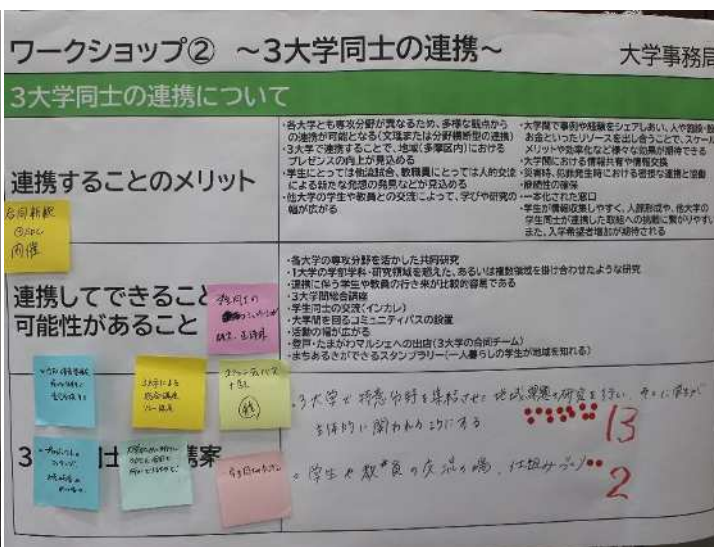 ワークショップ② ～3大学同士の連携～
大学事務局
3大学同士の連携について
連携することのメリット
・各大学とも専攻分野が異なるため、多様な観点から
の連携が可能となる(文理または分野横断型の連携)
・3大学で連携することで、地域(多摩区内)における
プレゼンスの向上が見込める
・学生にとっては他流試合、教職員にとっては人的交流
による新たな発想の発見などが見込める
・他大学の学生や教員との交流によって、学びや研究の
幅が広がる
・大学間で事例や経験をシェアしあい、人や施設・設
お金といったリソースを出し合うことで、スケール
メリットや効率化など様々な効果が期待できる
・大学間における情報共有や情報交換
・災害時、犯罪発生時における密接な連携と協働
・継続性の確保
・一本化された窓口
・学生が情報収集しやすく、人脈形成や、他大学の
学生同士が連携した取組への挑戦に繋がりやすい
また、入学希望者増加が期待される
合同新歓
開催
連携してできること
可能性があること
・各大学の専攻分野を活かした共同研究
・1大学の学部学科・研究領域を超えた、あるいは複数領域を掛け合わせたような研究
・連携に伴う学生や教員の行き来が比較的容易である
・3大学間総合講座
・学生同士の交流(インカレ)
・大学間を回るコミュニティバスの設置
・活動の幅が広がる
・登戸・たまがわマルシェへの出店(3大学の合同チーム)
・まちあるきができるスタンプラリー(一人暮らしの学生が地域を知れる)
学生同士の
3大学による
総合講座
3
同士
携案
・3大学で得意分野を集結させて地域課題の研究を行い、そこに学生が
主体的に関われるようにする
13
・学生や教職員の交流の場、仕組みづくり
2